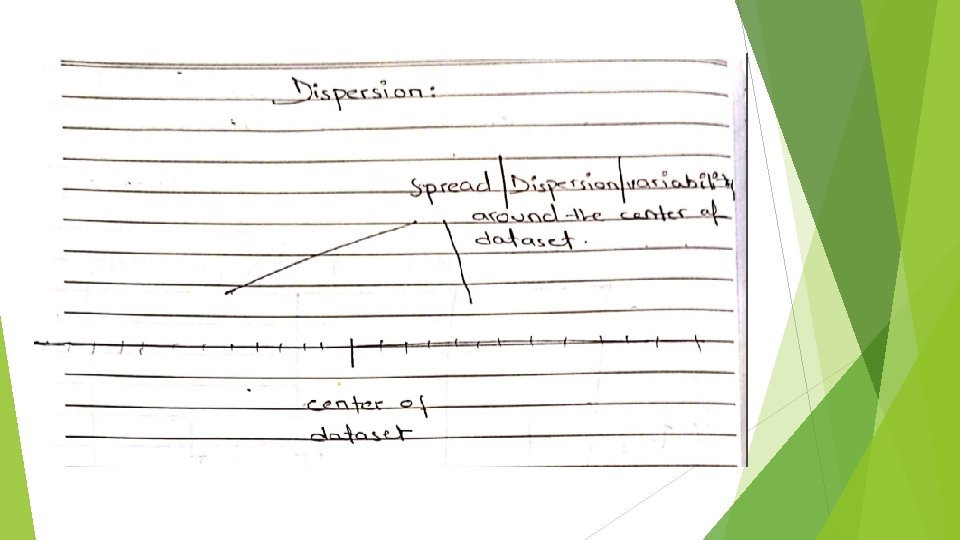 Dispersion:
Spread/Dispersion/variability
around the center of
dataset.
center of
dataset